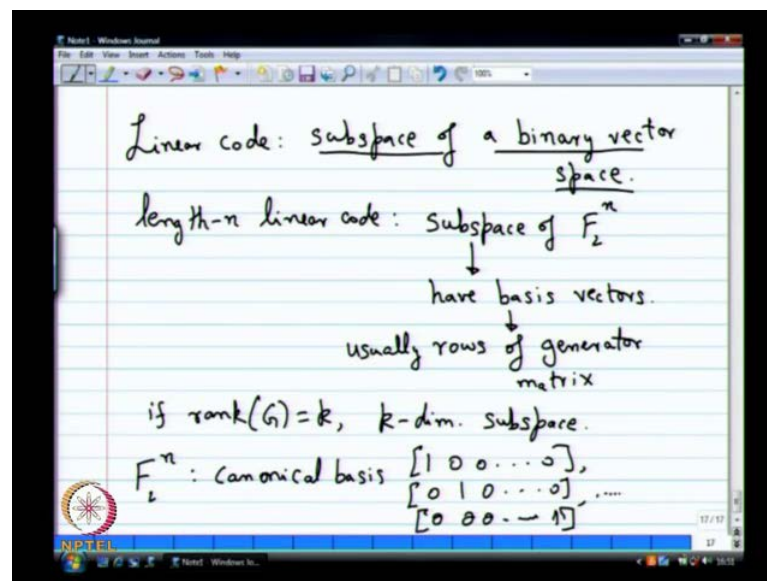 Note1 - Windows Journal
File Edit View Insert Actions Tools Help
100%
Linear code: subspace of a binary vector
space.
length-n linear code: subspace of F₂ⁿ
↓
have basis vectors.
↓
usually rows of generator
matrix
if rank(G)=k, k-dim. subspace.
F₂ⁿ: canonical basis [1 0 0 ... 0],
[0 1 0 ... 0], ....
[0 0 0 ... 1]
17/17
17
NPTEL
Note1 - Windows Jo...
16:51